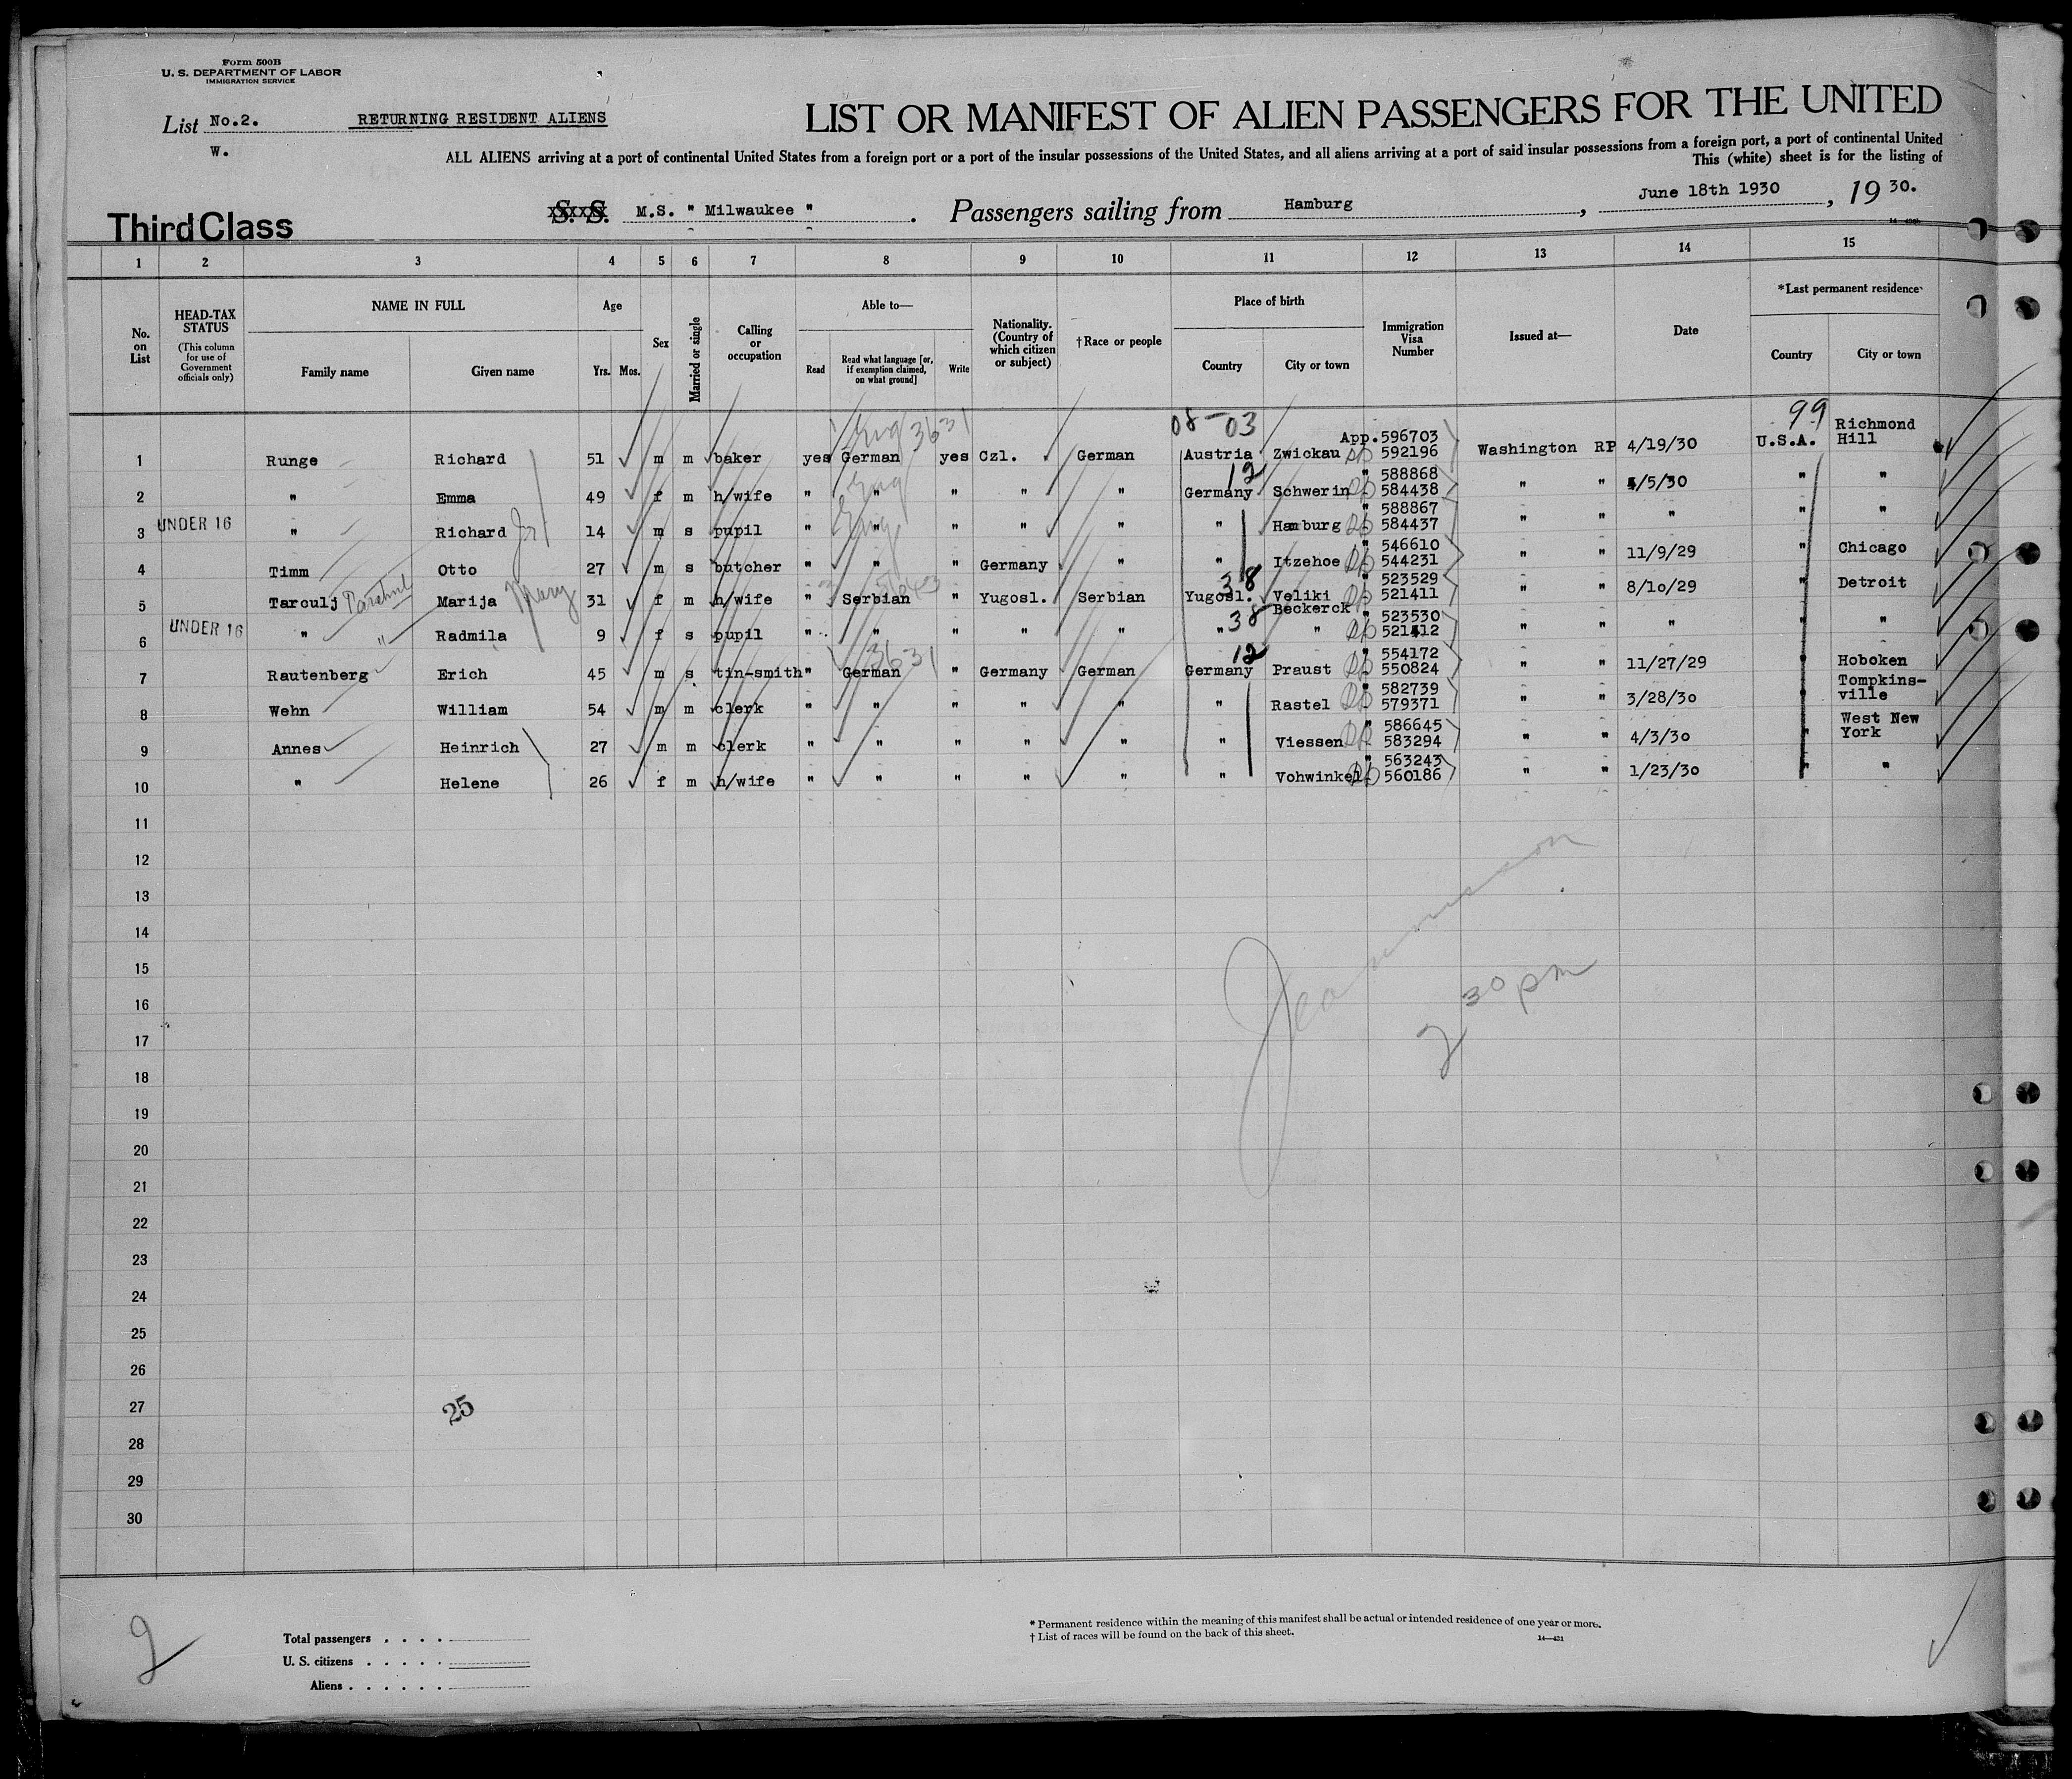 Form 500B
U. S. DEPARTMENT OF LABOR
IMMIGRATION SERVICE
List No.2. RETURNING RESIDENT ALIENS
W.
LIST OR MANIFEST OF ALIEN PASSENGERS FOR THE UNITED
ALL ALIENS arriving at a port of continental United States from a foreign port or a port of the insular possessions of the United States, and all aliens arriving at a port of said insular possessions from a foreign port, a port of continental United
This (white) sheet is for the listing of
Third Class
S. S. M.S. " Milwaukee " . Passengers sailing from Hamburg , June 18th 1930 , 19 30.
1 2 3 4 5 6 7 8 9 10 11 12 13 14 15
No. on List
HEAD-TAX STATUS
(This column for use of Government officials only)
NAME IN FULL
Family name Given name
Age
Yrs. Mos.
Sex
Married or single
Calling or occupation
Able to—
Read Read what language [or, if exemption claimed, on what ground] Write
Nationality. (Country of which citizen or subject)
†Race or people
Place of birth
Country City or town
Immigration Visa Number
Issued at—
Date
*Last permanent residence
Country City or town
Eng 3631 08-03 99
1 Runge Richard 51 m m baker yes German yes Czl. German Austria Zwickau App. 596703 592196 Washington RP 4/19/30 U.S.A. Richmond Hill
Eng 12
2 " Emma 49 f m h/wife " " " " " Germany Schwerin " 588868 584438 " " 4/5/30 " "
Eng
3 UNDER 16 " Richard Jr 14 m s pupil " " " " " " Hamburg " 588867 584437 " " " " "
4 Timm Otto 27 m s butcher " " " Germany " " Itzehoe " 546610 544231 " " 11/9/29 " Chicago
38
5 Tarculj Marija Mary 31 f m h/wife " Serbian " Yugosl. Serbian Yugosl. Veliki Beckerck " 523529 521411 " " 8/10/29 " Detroit
38
6 UNDER 16 " " Radmila 9 f s pupil " " " " " " " " 523530 521412 " " " " "
3631 12
7 Rautenberg Erich 45 m s tin-smith " German " Germany German Germany Praust " 554172 550824 " " 11/27/29 " Hoboken
8 Wehn William 54 m m clerk " " " " " " Rastel " 582739 579371 " " 3/28/30 " Tompkins-ville
9 Annes Heinrich 27 m m clerk " " " " " " Viessen " 586645 583294 " " 4/3/30 " West New York
10 " Helene 26 f m h/wife " " " " " " Vohwinkel " 563243 560186 " " 1/23/30 " "
11
12
13
14
15
16
2 30 pm
17
18
19
20
21
22
23
24
25
26
27
25
28
29
30
2
Total passengers
U. S. citizens
Aliens
* Permanent residence within the meaning of this manifest shall be actual or intended residence of one year or more.
† List of races will be found on the back of this sheet.
14—431